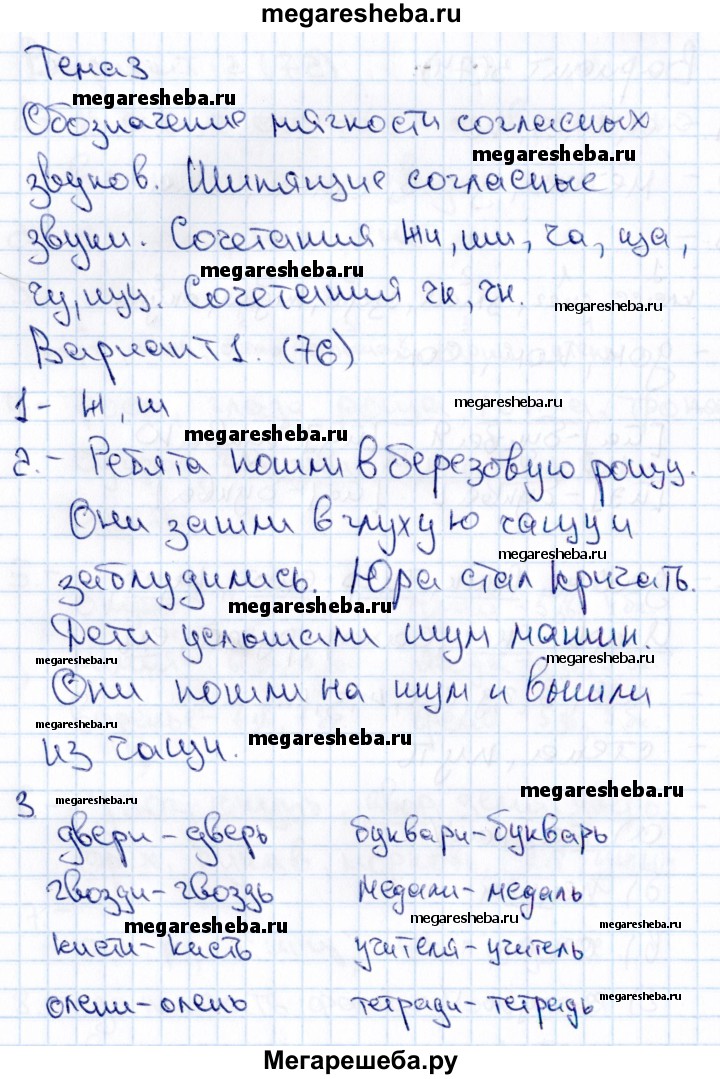 megaresheba.ru
Тема 3
megaresheba.ru
Обозначение мягкости согласных
megaresheba.ru
звуков. Шипящие согласные
звуки. Сочетания жи, ши, ча, ща,
megaresheba.ru
чу, щу. Сочетания чк, чн.
megaresheba.ru
Вариант 1. (76)
1 - ж, ш
megaresheba.ru
megaresheba.ru
2. - Ребята пошли в березовую рощу.
Они зашли в глухую чащу и
megaresheba.ru
заблудились. Юра стал кричать.
megaresheba.ru
Дети услышали шум машин.
megaresheba.ru
megaresheba.ru
Они пошли на шум и вышли
megaresheba.ru
из чащи.
megaresheba.ru
megaresheba.ru
3
megaresheba.ru
двери - дверь буквари - букварь
гвозди - гвоздь медали - медаль
megaresheba.ru
megaresheba.ru
кисти - кисть учителя - учитель
megaresheba.ru
олени - олень тетради - тетрадь
megaresheba.ru
Мегарешеба.ру